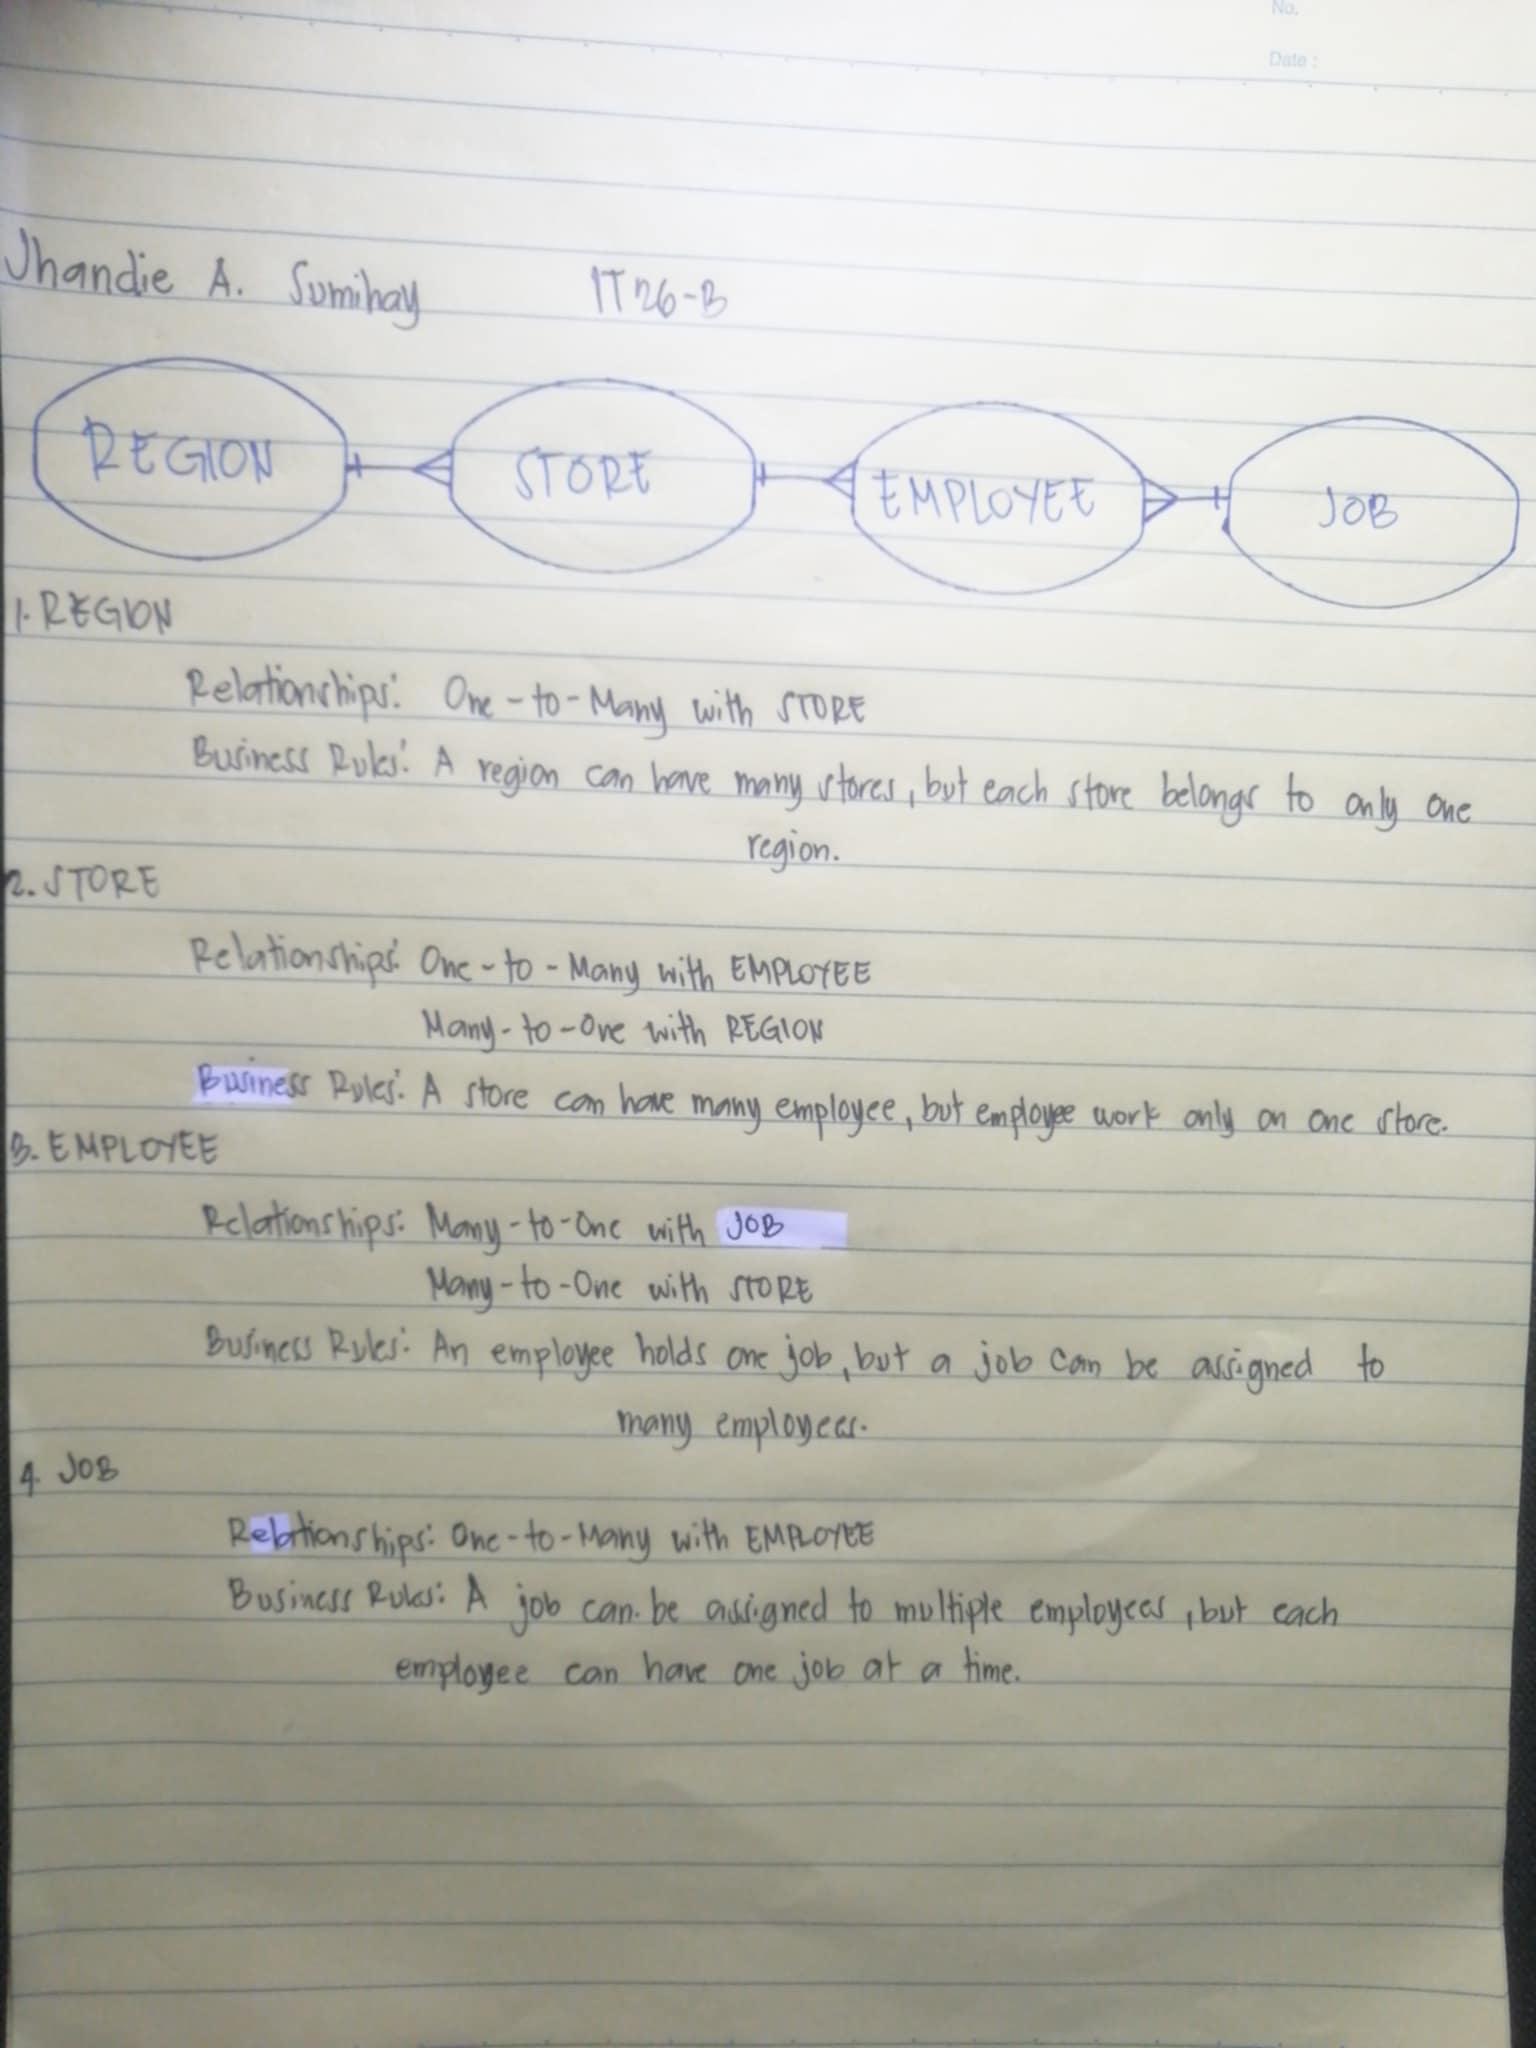 No.
Date :
Jhandie A. Sumihay IT26-B
REGION STORE EMPLOYEE JOB
1. REGION
Relationships: One-to-Many with STORE
Business Rules: A region can have many stores, but each store belongs to only one
region.
2. STORE
Relationships: One-to-Many with EMPLOYEE
Many-to-One with REGION
Business Rules: A store can have many employee, but employee work only on one store.
3. EMPLOYEE
Relationships: Many-to-One with JOB
Many-to-One with STORE
Business Rules: An employee holds one job, but a job can be assigned to
many employees.
4. JOB
Relationships: One-to-Many with EMPLOYEE
Business Rules: A job can be assigned to multiple employees, but each
employee can have one job at a time.